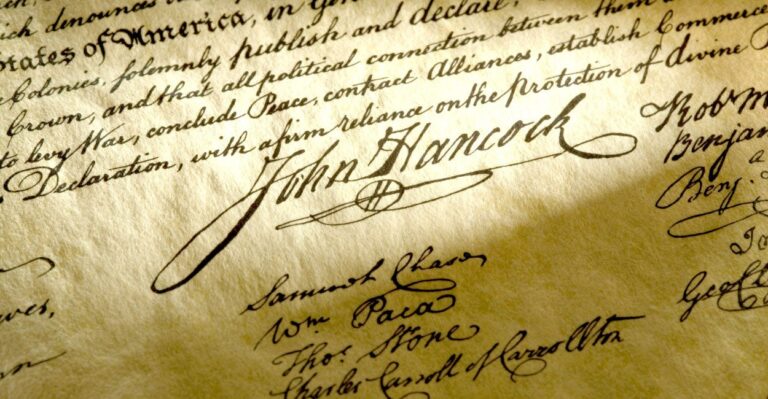 ich denounces
States of America, in Gen
Colonies, solemnly publish and declare,
Crown, and that all political connection between them a
to levy War, conclude Peace, contract Alliances, establish Commerce
Declaration, with a firm reliance on the protection of divine P
John Hancock
Rob M
Benjam
Benj.
Samuel Chase
Wm Paca
Thos. Stone
Charles Carroll of Carrollton
Geo Cl